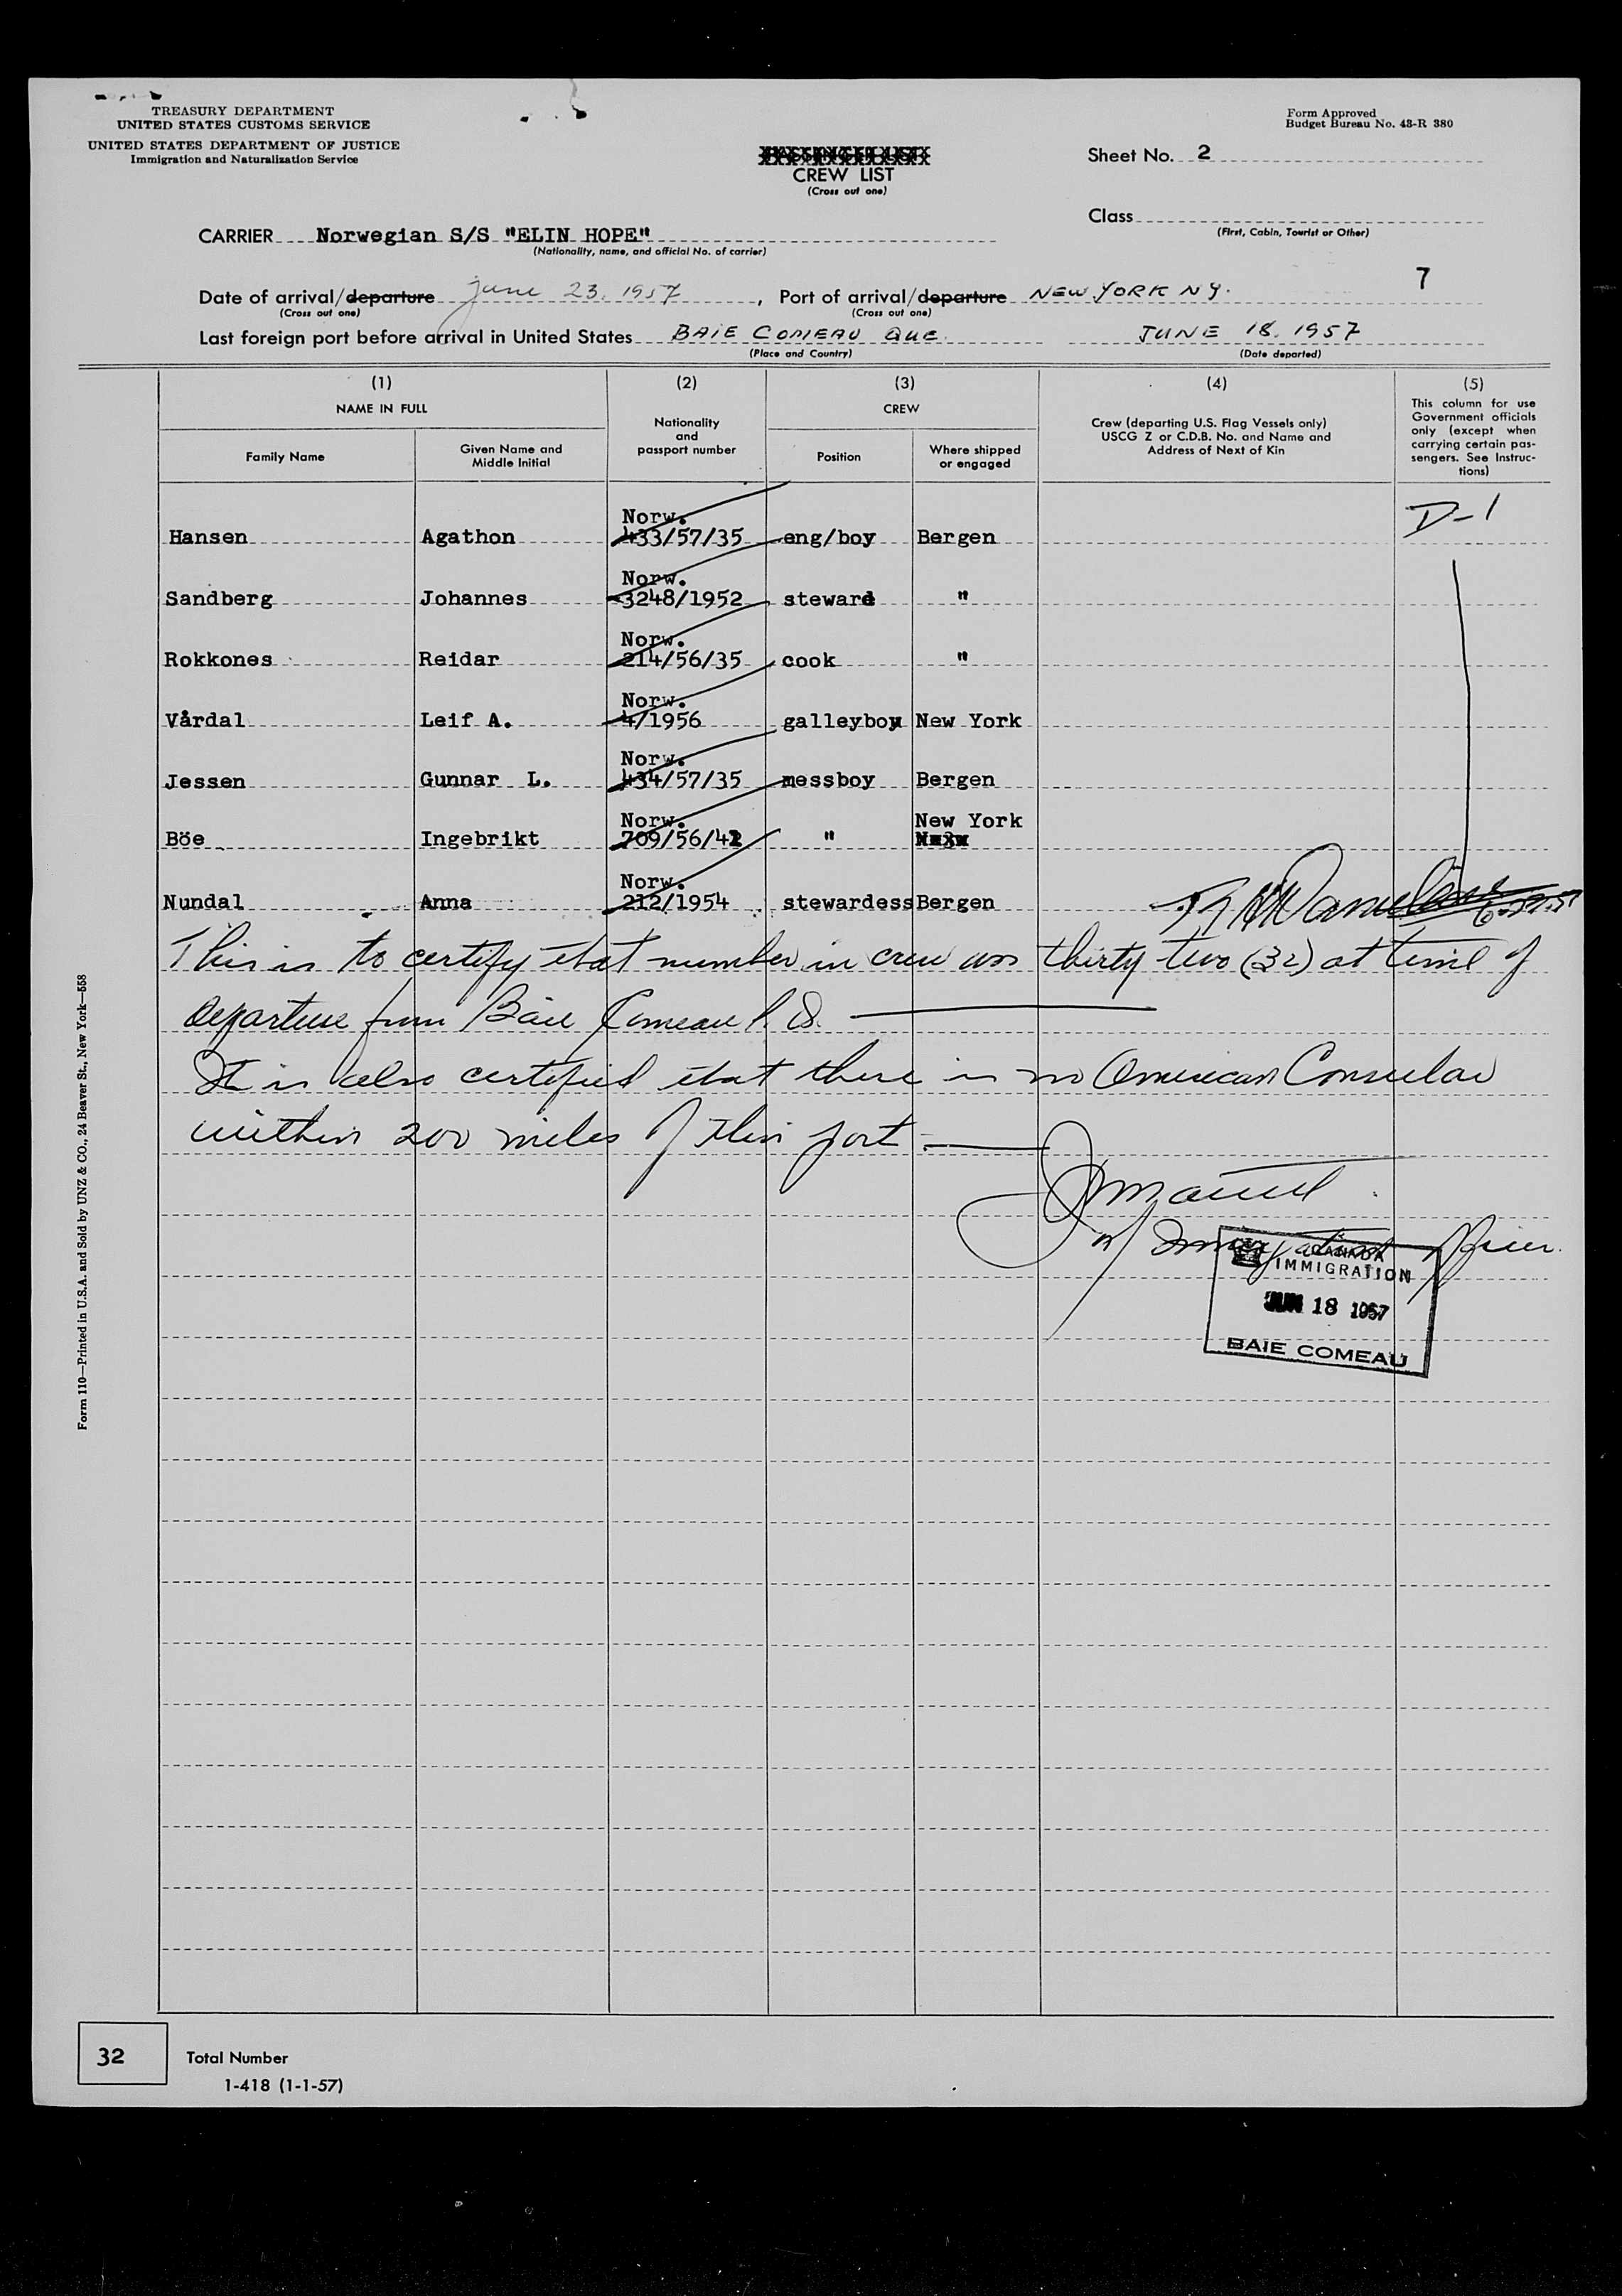 TREASURY DEPARTMENT
UNITED STATES CUSTOMS SERVICE
UNITED STATES DEPARTMENT OF JUSTICE
Immigration and Naturalization Service
Form Approved
Budget Bureau No. 43-R 380
PASSENGER LIST
CREW LIST
(Cross out one)
Sheet No. 2
Class
(First, Cabin, Tourist or Other)
CARRIER Norwegian S/S "ELIN HOPE"
(Nationality, name, and official No. of carrier)
7
Date of arrival/departure June 23, 1957, Port of arrival/departure NEW YORK NY.
(Cross out one) (Cross out one)
Last foreign port before arrival in United States BAIE COMEAU QUE. JUNE 18, 1957
(Place and Country) (Date departed)
(1) (2) (3) (4) (5)
NAME IN FULL
Family Name
Given Name and
Middle Initial
Nationality
and
passport number
CREW
Position
Where shipped
or engaged
Crew (departing U.S. Flag Vessels only)
USCG Z or C.D.B. No. and Name and
Address of Next of Kin
This column for use
Government officials
only (except when
carrying certain pas-
sengers. See Instruc-
tions)
D-1
Norw.
Hansen Agathon 433/57/35 eng/boy Bergen
Norw.
Sandberg Johannes 3248/1952 steward "
Norw.
Rokkones Reidar 214/56/35 cook "
Norw.
Vårdal Leif A. 4/1956 galleyboy New York
Norw.
Jessen Gunnar L. 434/57/35 messboy Bergen
Norw. New York
Böe Ingebrikt 709/56/42 "
Norw.
Nundal Anna 212/1954 stewardess Bergen
This is to certify that number in crew was thirty two (32) at time of
departure from Baie Comeau P. Q.
It is also certified that there is no American Consular
within 200 miles of this port
Immigration Officer.
CANADA
IMMIGRATION
JUN 18 1957
BAIE COMEAU
Form 110—Printed in U.S.A. and Sold by UNZ & CO., 24 Beaver St., New York—558
32 Total Number
1-418 (1-1-57)